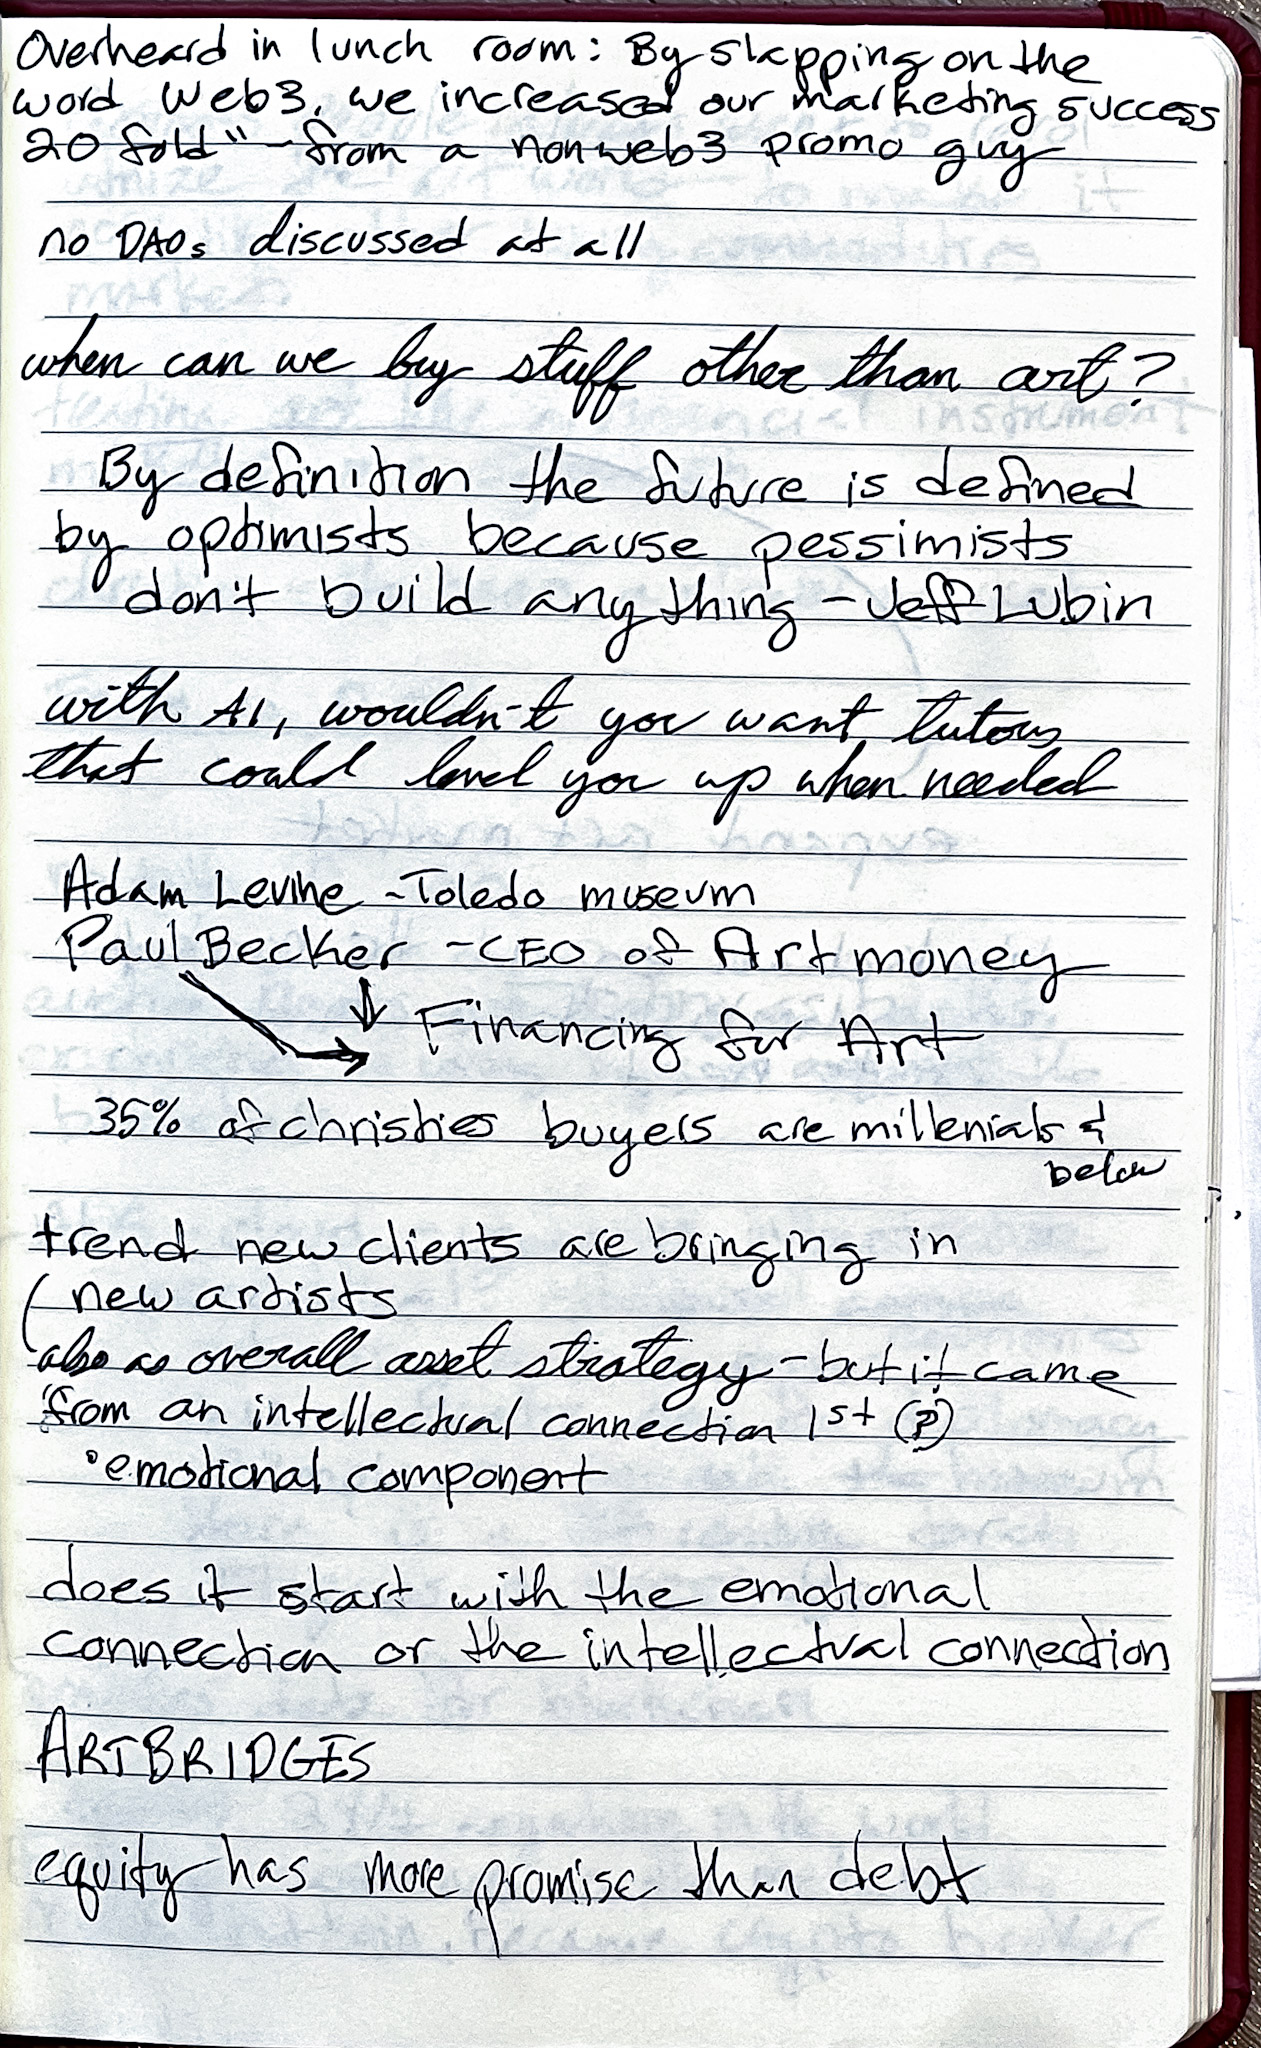 Overheard in lunch room: By slapping on the
word Web3, we increased our marketing success
20 fold" - from a nonweb3 promo guy
no DAOs discussed at all
when can we buy stuff other than art?
By definition the future is defined
by optimists because pessimists
don't build anything - Jeff Lubin
with AI, wouldn't you want tutors
that could level you up when needed
Adam Levine - Toledo museum
Paul Becker - CEO of Art money
Financing for Art
35% of christies buyers are millenials &
below
trend new clients are bringing in
new artists
also as overall asset strategy - but it came
from an intellectual connection 1st (?)
• emotional component
does it start with the emotional
connection or the intellectual connection
ARTBRIDGES
equity has more promise than debt